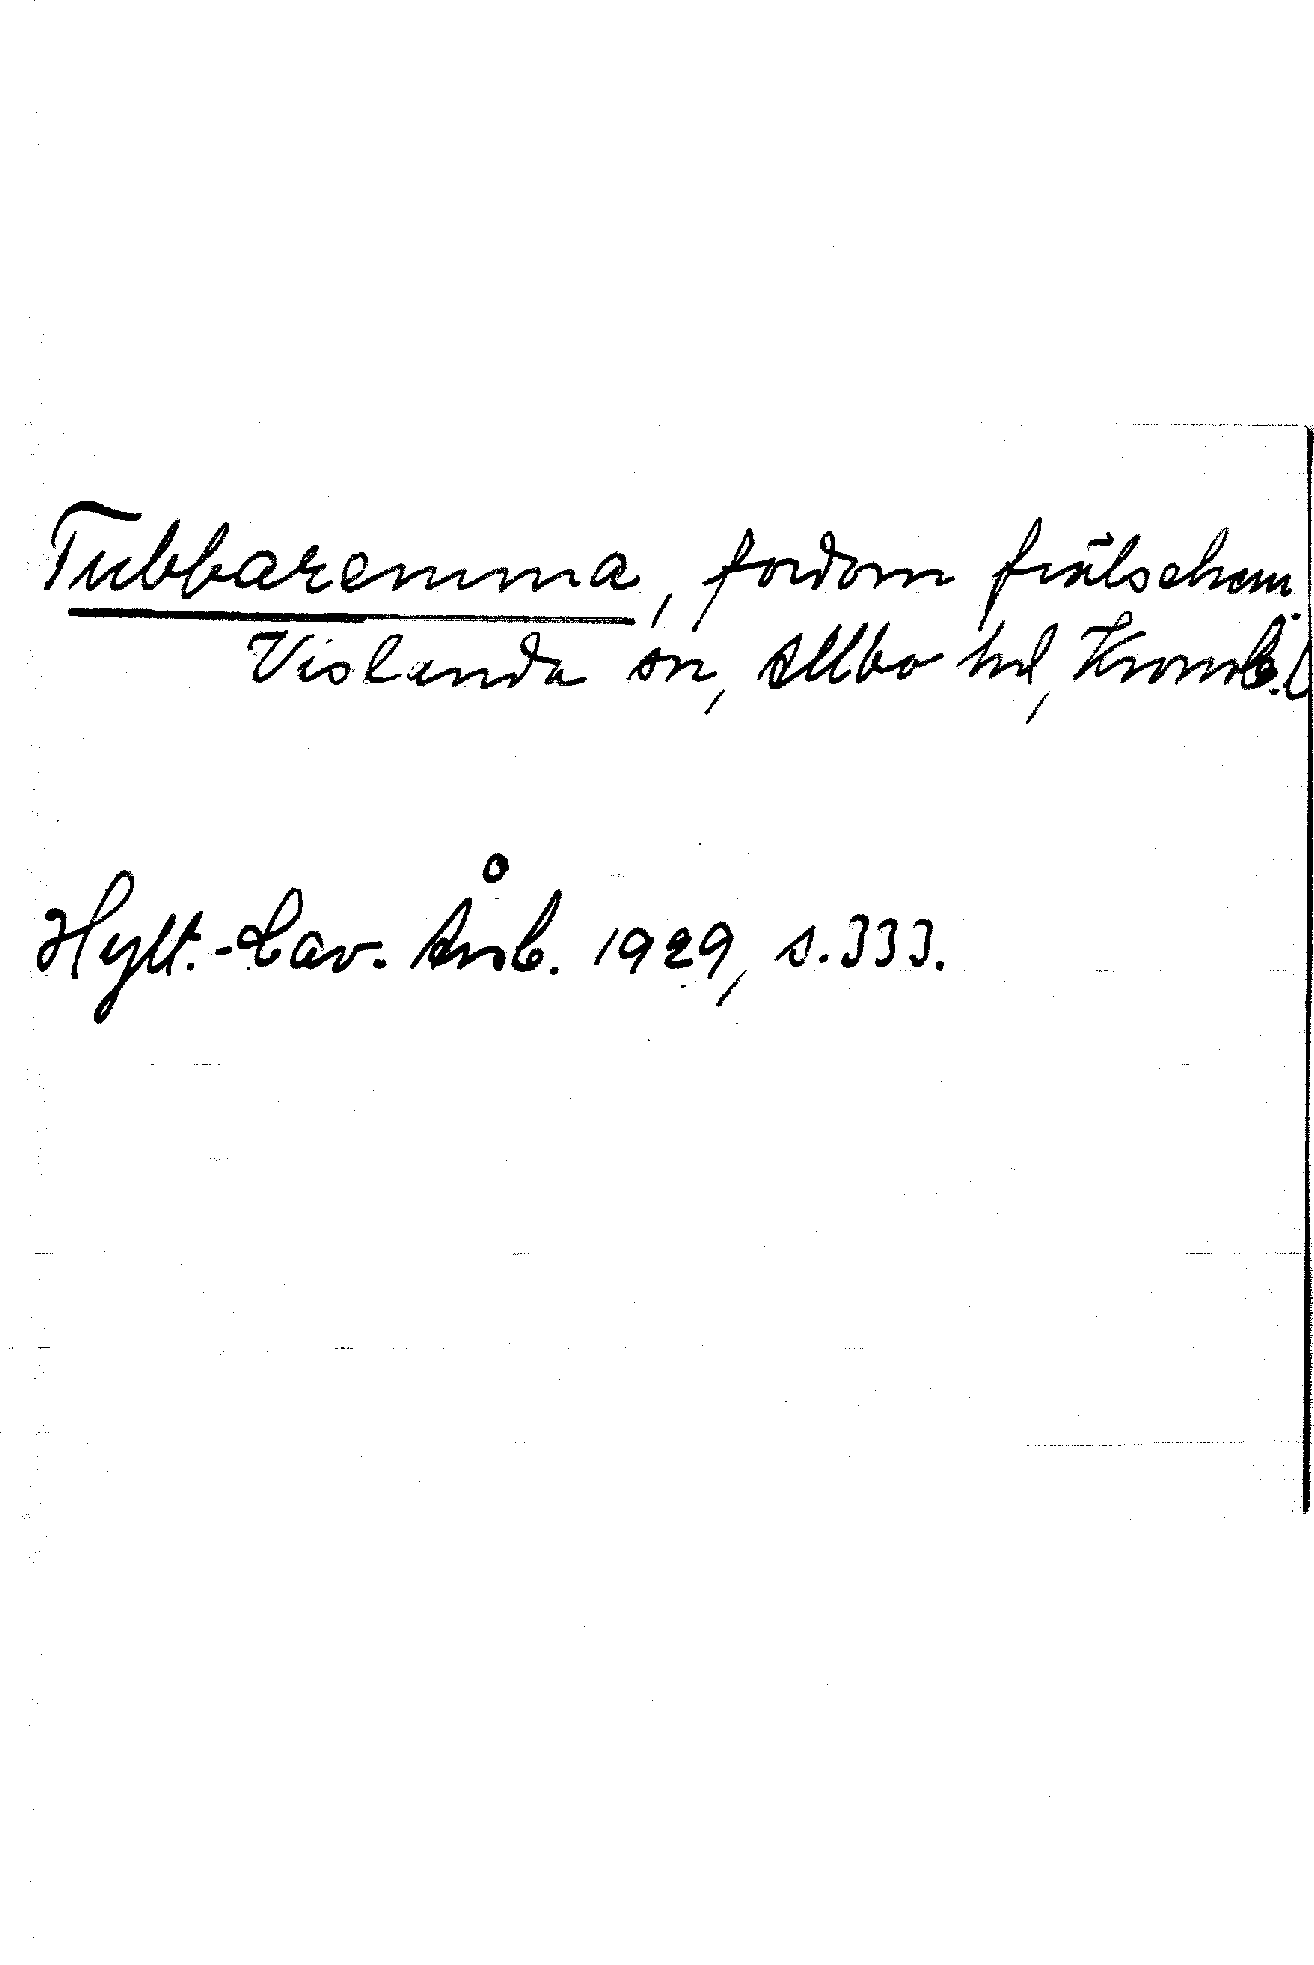 Tubbaremma, fordom frälsehem.
Vislanda sn, Allbo hd, Kronob. l
Hylt.-Cav. Årsb. 1929, s. 333.